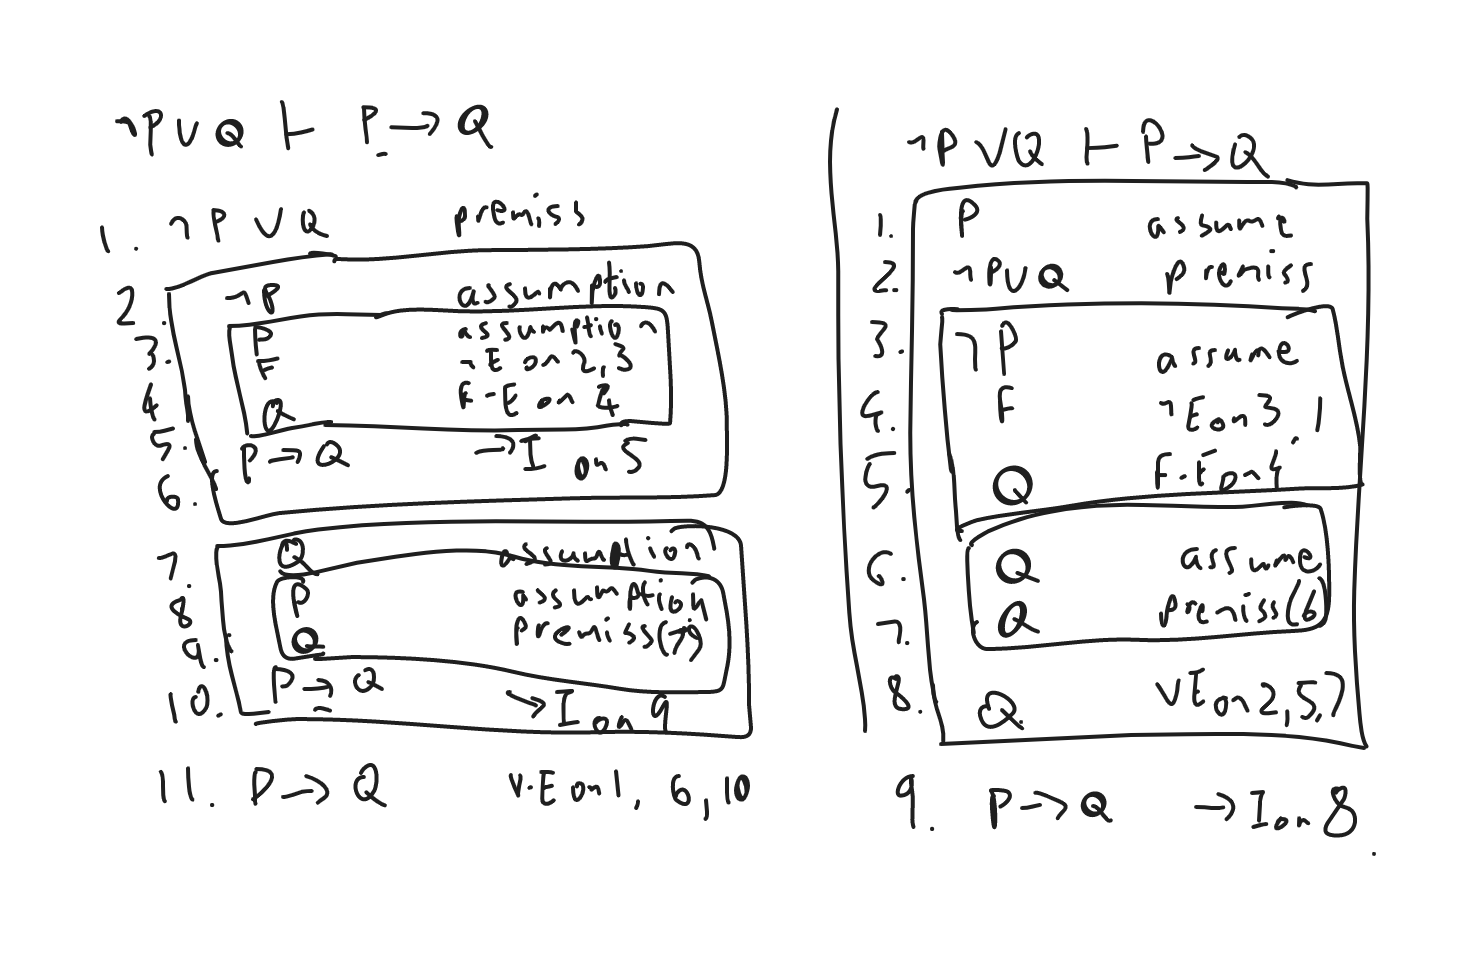 ¬P ∨ Q ⊢ P → Q
1. ¬P ∨ Q premiss
2. ¬P assumption
3. P assumption
4. F ¬E on 2, 3
5. Q F-E on 4
6. P → Q →I on 5
7. Q assumption
8. P assumption
9. Q premiss(7)
10. P → Q →I on 9
11. P → Q ∨-E on 1, 6, 10
¬P ∨ Q ⊢ P → Q
1. P assume
2. ¬P ∨ Q premiss
3. ¬P assume
4. F ¬E on 3, 1
5. Q F-E on 4
6. Q assume
7. Q premiss(6)
8. Q ∨E on 2, 5, 7
9. P → Q →I on 8